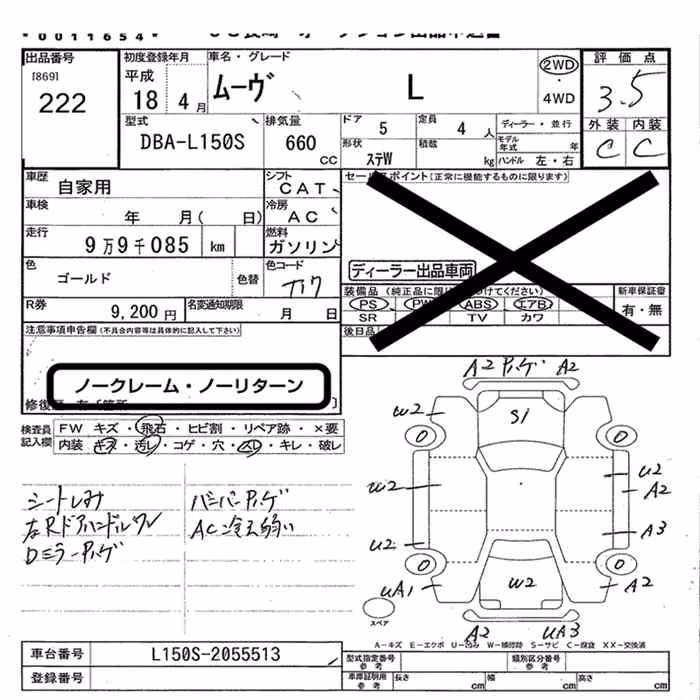 0011654
出品番号
[869]
222
初度登録年月
平成
18 4 月
車名・グレード
ムーヴ L
2WD
・
4WD
評価点
3.5
外装 内装
C C
型式
DBA-L150S
排気量
660 cc
ドア 5
定員 4 人
形状 ステW
積載 kg
ディーラー・並行
モデル年式 年
ハンドル 左・右
車歴 自家用
シフト CAT
車検 年 月( 日)
冷房 AC
走行 9万9千085 km
燃料 ガソリン
色 ゴールド 色替
色コード T17
R券 9,200 円
名変通知期限 月 日
セールスポイント(正常に機能するものに限ります)
ディーラー出品車両
装備品(純正品に限り 付けてください)
PS PW ABS エアB
SR TV カワ
新車保証書
有・無
後日品
注意事項申告欄(不具合内容等は具体的に記入して下さい)
ノークレーム・ノーリターン
検査員記入欄
FW キズ・飛石・ヒビ割・リペア跡・×要
内装 キズ・汚レ・コゲ・穴・スレ・キレ・破レ
シートしみ
左Rドアハンドルワレ
Dミラーアレゲ
AC冷え弱い
A2 A2
W2
S1
W2
U2
A2
A3
U2
W2
UA1
A2
A2 UA3
スペア
A-キズ E-エクボ U-凹み W-補修跡 S-サビ C-腐食 XX-交換済
車台番号 L150S-2055513
登録番号
型式指定番号 参考
類別区分番号 参考
車庫証明用 参考
長さ cm 幅 cm 高さ cm